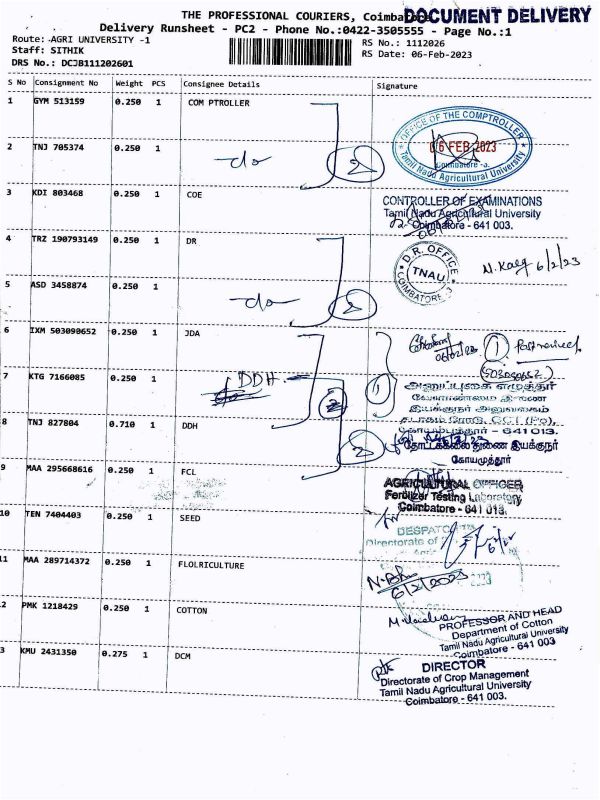 THE PROFESSIONAL COURIERS, Coimbatore
DOCUMENT DELIVERY
Delivery Runsheet - PC2 - Phone No.:0422-3505555 - Page No.:1
Route: AGRI UNIVERSITY -1
RS No.: 1112026
Staff: SITHIK
RS Date: 06-Feb-2023
DRS No.: DCJB111202601
S No Consignment No Weight PCS Consignee Details Signature
1 GYM 513159 0.250 1 COM PTROLLER
OFFICE OF THE COMPTROLLER
06 FEB 2023
Coimbatore -3.
Tamil Nadu Agricultural University
2 TNJ 705374 0.250 1
-do
2
3 KDI 803468 0.250 1 COE
CONTROLLER OF EXAMINATIONS
Tamil Nadu Agricultural University
Coimbatore - 641 003.
4 TRZ 190793149 0.250 1 DR
D.R. OFFICE
TNAU
COIMBATORE-3
6/2/23
5 ASD 3458874 0.250 1
-do
2
6 IXM 503090652 0.250 1 JDA
06/02/23
1
(503090652)
7 KTG 7166085 0.250 1
DDH
2
1
கோயமுத்தூர் - 641 013.
8 TNJ 827804 0.710 1 DDH
2
தோட்டக்கலை துணை இயக்குநர்
கோயமுத்தூர்
9 MAA 295668616 0.250 1 FCL
AGRICULTURAL OFFICER
Fertilizer Testing Laboratory
Coimbatore - 641 013.
10 TEN 7404403 0.250 1 SEED
DESPATCH
Directorate of
11 MAA 289714372 0.250 1 FLOLRICULTURE
6/2/2023
2 PMK 1218429 0.250 1 COTTON
PROFESSOR AND HEAD
Department of Cotton
Tamil Nadu Agricultural University
Coimbatore - 641 003
3 KMU 2431350 0.275 1 DCM
DIRECTOR
Directorate of Crop Management
Tamil Nadu Agricultural University
Coimbatore - 641 003.